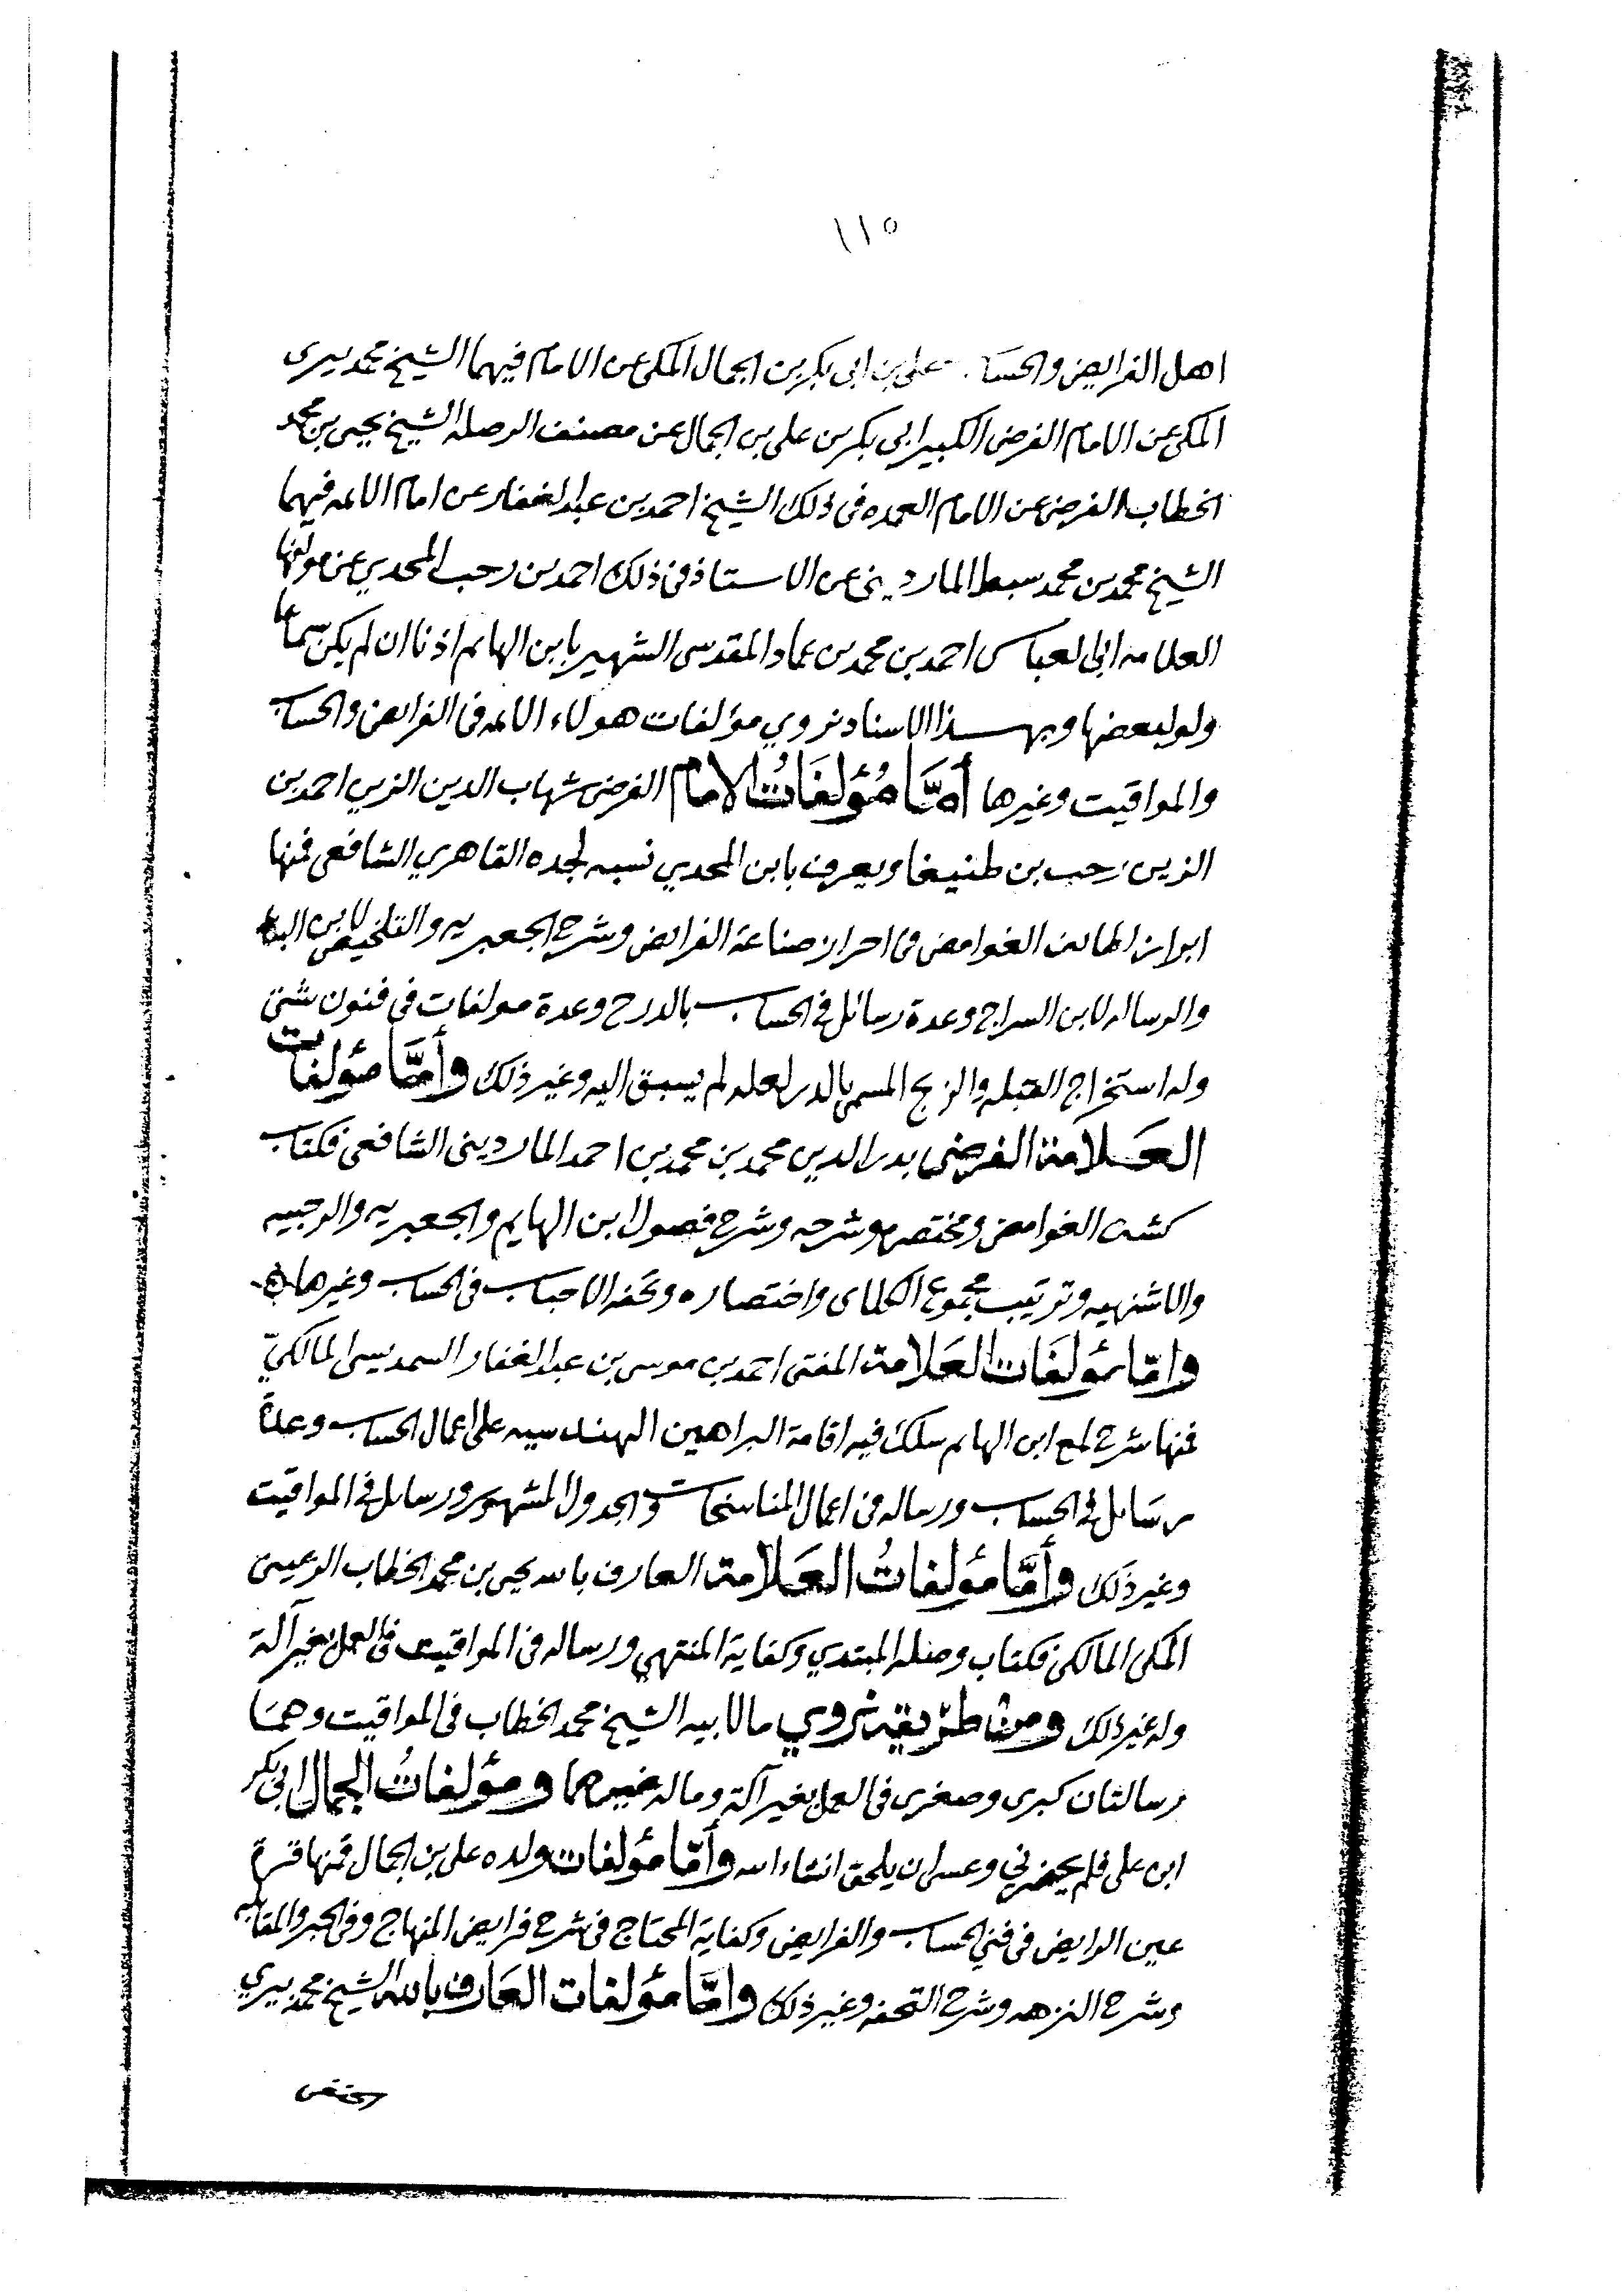 ١١٥
اهل الفرايض والحساب على بن ابى بكر بن الجمال المكى عن الامام فيهما الشيخ محمد بيرى
المكى عن الامام الفرضى الكبير ابى بكر بن على بن الجمال عن مصنف الوصله الشيخ يحيى بن محمد
الحطاب الفرضى عن الامام العمده فى ذلك الشيخ احمد بن عبد الغفار عن امام الائمه فيهما
الشيخ محمد بن محمد سبط الماردينى عن الاستاذ فى ذلك احمد بن رجب المجدي عن مولفها
العلامه ابى العباس احمد بن محمد بن عماد المقدسى الشهير بابن الهائم اذنا ان لم يكن سماعا
ولو لبعضها وبهذا الاسناد نروي مؤلفات هولاء الائمه فى الفرايض والحساب
والمواقيت وغيرها أمَّا مُؤلفَاتُ الامام الفرضى شهاب الدين الزين احمد بن
الزين رجب بن طنبيغا ويعرف بابن المجدي نسبه لجده القاهري الشافعى فمنها
ابراز لطائف الغوامض فى احراز صناعة الفرائض وشرح الجعبريه والتلخيص لابن البنا
والرساله لابن السراج وعدة رسائل فى الحساب بالدرج وعدة مولفات فى فنون شتى
وله استخراج القبله والزيج المسمى بالدر لعله لم يسبق اليه وغير ذلك وأمَّا مؤلفات
العَلامة الفرضى بدر الدين محمد بن محمد بن احمد الماردينى الشافعى فكتاب
كشف الغوامض ومختصره وشرحه وشرح فصول ابن الهايم والجعبريه والرحبيه
والاشنهيه وترتيب مجموع الكلائى واختصاره وتحفه الاحباب فى الحساب وغيرها
وامّا مؤلفَات العَلامة المفتى احمد بن موسى بن عبد الغفار السمديسى المالكيّ
فمنها شرح لمع ابن الهائم سلك فيه اقامة البراهين الهندسيه على اعمال الحساب وعدة
رسَائل فى الحساب ورساله فى اعمال المناسخات والجدول المشهور ورسايل فى المواقيت
وغير ذلك وأمَّا مؤلفاتُ العَلامة العارف بالله يحيى بن محمد الحطاب الرعينى
المكى المالكى فكتاب وصله المبتدي وكفاية المنتهي ورساله فى المواقيت فى العمل بغير آلة
وله غير ذلك ومن طريقه نروي ما لابيه الشيخ محمد الحطاب فى المواقيت وهمَا
رسالتان كبرى وصغرى فى العمل بغير آلة وما له غيرهما ومؤلفاتُ الجمال ابى بكر
ابن على فلم يحضرني وعسى ان يلحق انشاء الله وأمّا مؤلفات ولده على بن الجمال فمنها قرة
عين الرايض فى فني الحساب والفرايض وكفاية المحتاج فى شرح فرايض المنهاج وفى الجبر والمقابله
وشرح النزهه وشرح التحفه وغير ذلك وامَّا مؤلفات العَارف بالله الشيخ محمد بيري